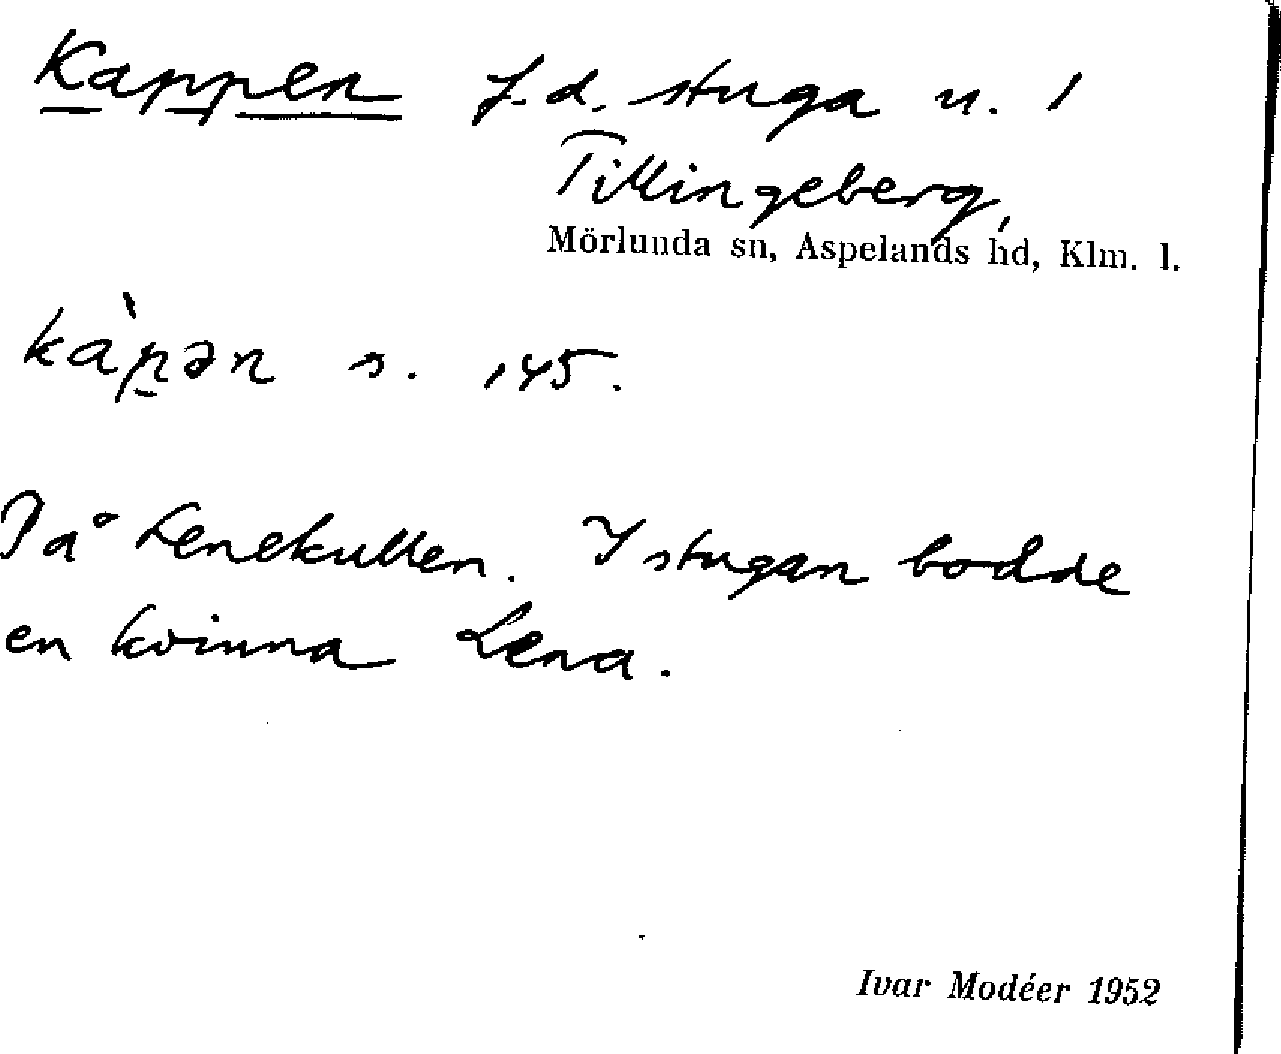 Kappen f.d. stuga u. 1
Tillingeberg,
Mörlunda sn, Aspelands hd, Klm. l.
kàp̠ən s. 145.
På Lenekullen. I stugan bodde
en kvinna Lena.
Ivar Modéer 1952